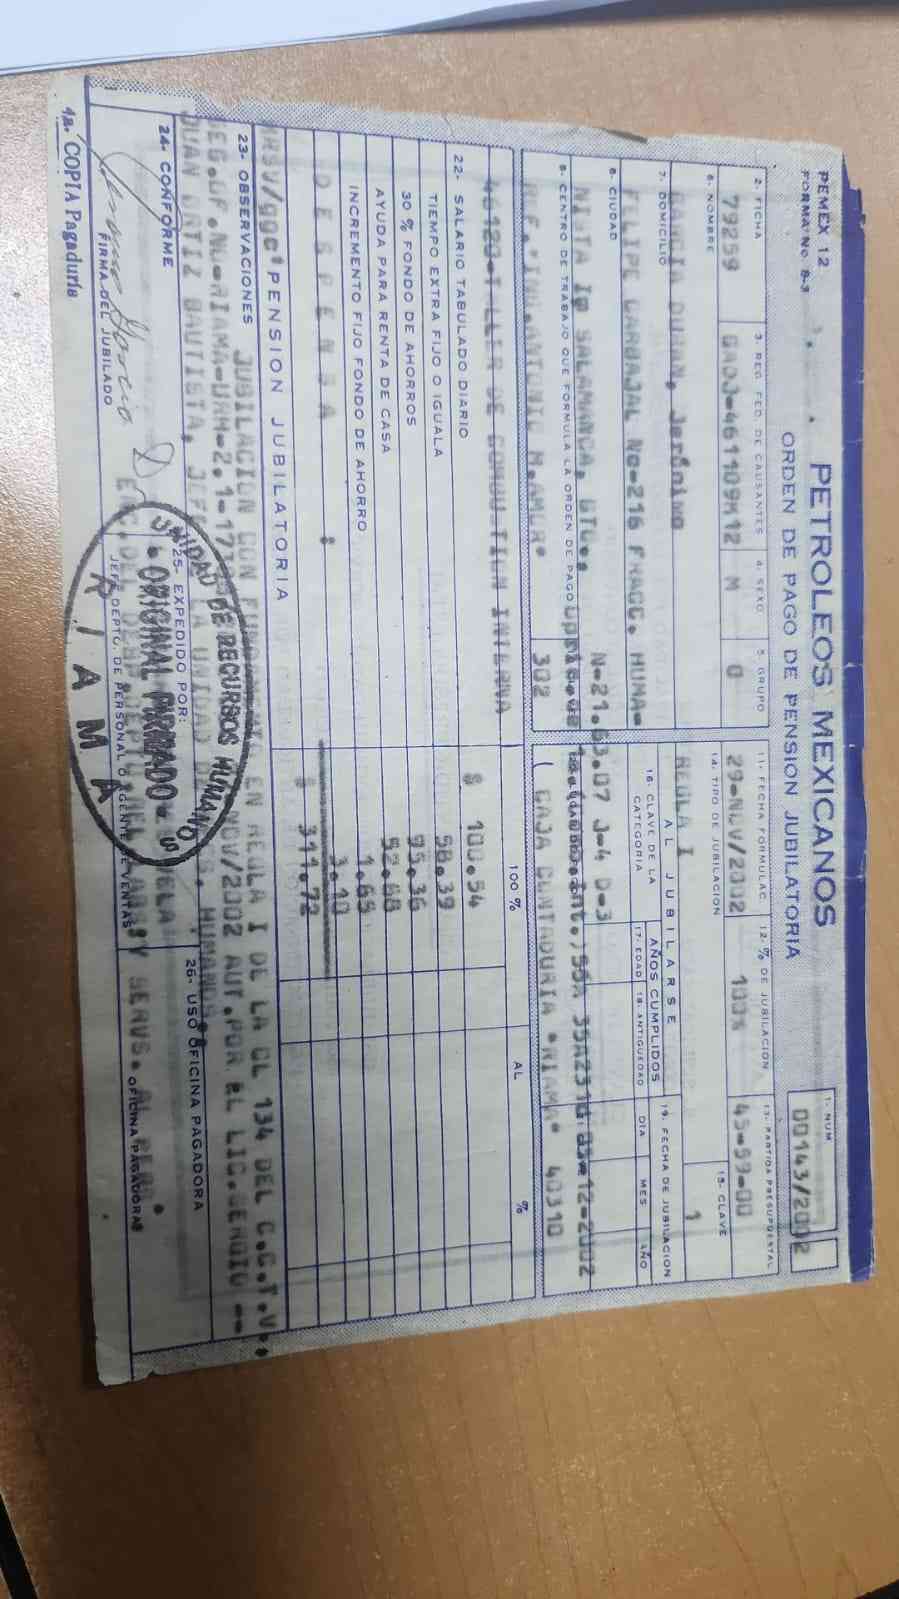 PEMEX 12
FORMA No. 8-3
PETROLEOS MEXICANOS
ORDEN DE PAGO DE PENSION JUBILATORIA
1- NUM
00143/2002
2- FICHA
79259
3- REG. FED. DE CAUSANTES
GADJ-461109M12
4- SEXO
M
5- GRUPO
O
11- FECHA FORMULAC.
29-NOV/2002
12- % DE JUBILACION
100%
13- PARTIDA PRESUPUESTAL
45-59-00
6- NOMBRE
GARCIA DURAN, Jerónimo
14- TIPO DE JUBILACION
REGLA I
15- CLAVE
1
7- DOMICILIO
FELIPE CARBAJAL No-216 FRACC. HUMA-
AL JUBILARSE
16- CLAVE DE LA CATEGORIA
AÑOS CUMPLIDOS
17- EDAD
18- ANTIGUEDAD
19- FECHA DE JUBILACION
DIA MES AÑO
8- CIUDAD
NISTA I@ SALAMANCA, GTO.,
N-21.63.07 J-4 D-3
55A 35A231d 03-12-2002
9- CENTRO DE TRABAJO QUE FORMULA LA ORDEN DE PAGO
REF."ING.ANTONIO M.AMOR"
302
( CAJA CONTADURIA "RIAMA" 40310
46120-TALLER DE COMBUSTION INTERNA
100 %
AL %
22- SALARIO TABULADO DIARIO
$ 100.54
TIEMPO EXTRA FIJO O IGUALA
58.39
30 % FONDO DE AHORROS
95.36
AYUDA PARA RENTA DE CASA
52.68
INCREMENTO FIJO FONDO DE AHORRO
1.65
D E S P E N S A :
3.10
$ 311.72
MRSV/ggc' PENSION JUBILATORIA
23- OBSERVACIONES
JUBILACION CON FUNDAMENTO EN REGLA I DE LA CL 134 DEL C.C.T.V..
SEG.OF.No-RIAMA-URH-2.1-171 NOV/2002 AUT.POR EL LIC.SERGIO --
JUAN ORTIZ BAUTISTA, JEFE UNIDAD HUMANOS.
24- CONFORME
FIRMA DEL JUBILADO
25- EXPEDIDO POR:
ENC. DEL DESP. DEPTO. SERVS. AL PERS.
JEFE DEPTO. DE PERSONAL O AGENTE DE VENTAS
26- USO OFICINA PAGADORA
OFICINA PAGADORA
UNIDAD DE RECURSOS HUMANOS
ORIGINAL FIRMADO
R I A M A
4a. COPIA Pagaduría